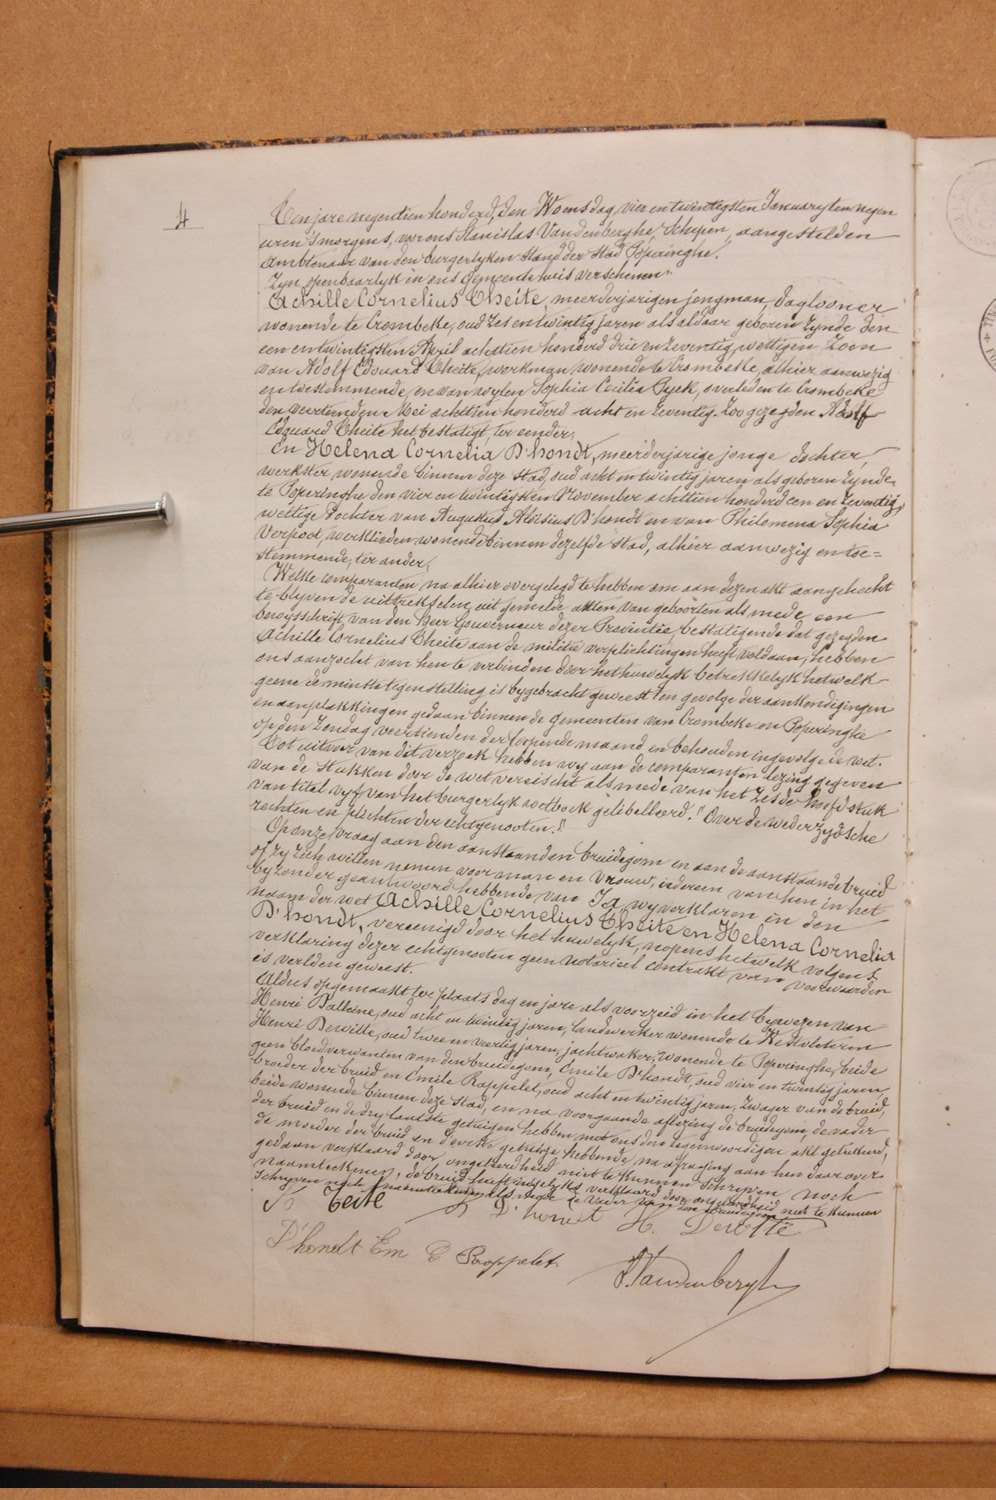 4
Ten jare negentien honderd, den Woensdag, vier en twintigsten January ten negen
uren 's morgens, voor ons Stanislas Vandenberghe, Schepen, aangestelden
Ambtenaar van den burgerlyken Stand der Stad Poperinghe.
Zyn openbaarlyk in ons Gemeente huis verschenen
Achille Cornelius Theite, meerderjarigen jongman, daglooner
wonende te Crombeke, oud zes en twintig jaren als aldaar geboren zynde den
een en twintigsten April achttien honderd drie en zeventig, wettigen Zoon
van Adolf Edouard Theite, werkman, wonende te Crombeke, alhier aanwezig
en toestemmende, en van wylen Sophia Cecilia Pyck, overleden te Crombeke
den veertienden Mei achttien honderd acht en zeventig. Zoo gezegden Adolf
Edouard Theite het bestatigt, ter eender,
En Helena Cornelia D'hondt, meerderjarige jonge dochter,
werkster, wonende binnen deze Stad, oud acht en twintig jaren als geboren zynde
te Poperinghe den vier en twintigsten November achttien honderd een en zeventig,
wettige Dochter van Augustus Aloïsius D'hondt en van Philomena Sophia
Verpoot, werklieden wonende binnen dezelfde Stad, alhier aanwezig en toe=
stemmende, ter ander,
Welke comparanten na alhier overgelegd te hebben om aan dezen akt aangehecht
te blyven de uittreksels uit gemelde akten van geboorten als mede een
bewysschrift van den Heer Gouverneur dezer Provintie, bestatigende dat gezegden
Achille Cornelius Theite aan de militie verplichtingen heeft voldaan, hebben
ons aanzocht van hen te verbinden door het huwelyk betrekkelyk hetwelk
geene de minste tegenstelling is bygebracht geweest ten gevolge der aankondigingen
en aanplakkingen gedaan binnen de gemeenten van Crombeke en Poperinghe
op den Zondag veertienden der loopende maand en behouden ingevolge de wet.
Tot uitvoer van dit verzoek hebben wy aan de comparanten lezing gegeven
van de stukken door de wet vereischt als mede van het Zesde hoofdstuk
van titel vyf van het burgerlyk wetboek gelibelleerd. "Over de wederzydsche
rechten en plichten der echtgenooten."
Op onze vraag aan den aanstaanden bruidegom en aan de aanstaande bruid
of zy zich willen nemen voor man en vrouw, iedereen van hen in het
byzonder geantwoord hebbende van Ja, wy verklaren in den
naam der wet Achille Cornelius Theite en Helena Cornelia
D'hondt, vereenigd door het huwelyk, nopens hetwelk volgens
verklaring dezer echtgenooten geen notarieel contrakt van voorwaarden
is verleden geweest.
Aldus opgemaakt ter plaats dag en jare als voorzeid in het bywezen van
Henri oud acht en twintig jaren, landwerker wonende te Westvleteren
Henri Derville, oud twee en veertig jaren, jachtwaker, wonende te Poperinghe, beide
geen bloedverwanten van den bruidegom, Emile D'hondt, oud vier en twintig jaren,
broeder der bruid en Emile Rappelet, oud acht en twintig jaren, zwager van de bruid,
beide wonende binnen deze Stad, en, na voorgaande aflezing de bruidegom, de vader
der bruid en de dry laatste getuigen hebben met ons den tegenwoordigen akt geteekend,
de moeder der bruid en de eerste getuige hebbende na afvraging aan hen daar over
gedaan verklaard door ongeleerdheid niet te kunnen schryven noch
naamteekenen, de bruid heeft insgelyks verklaard door ongeleerdheid niet te kunnen
schryven noch naamteekenen als mede de vader van den bruidegom
Teite D'hondt H. Derville
D'hondt Em E Rappelet
S. Vandenberghe